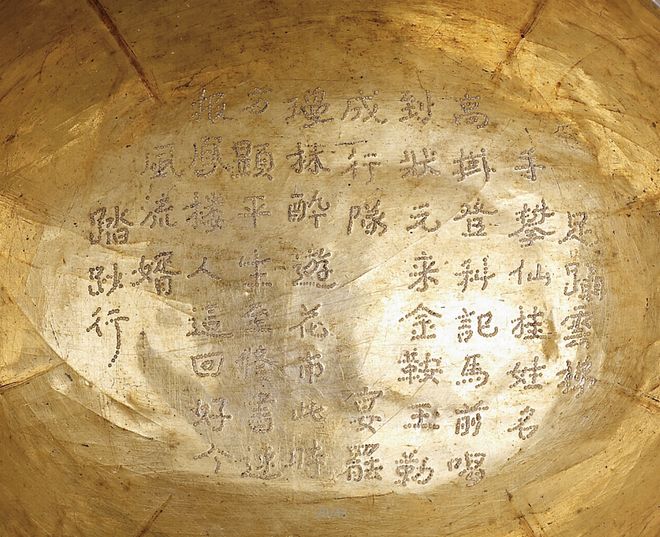 足躡雲梯
手攀仙桂姓名
高掛登科記馬前喝
到狀元来金鞍玉勒
成行隊 宴罷
瓊林醉遊花市此時
方顯平生至修書速
報鳳楼人這回好个
風流婿
踏莎行